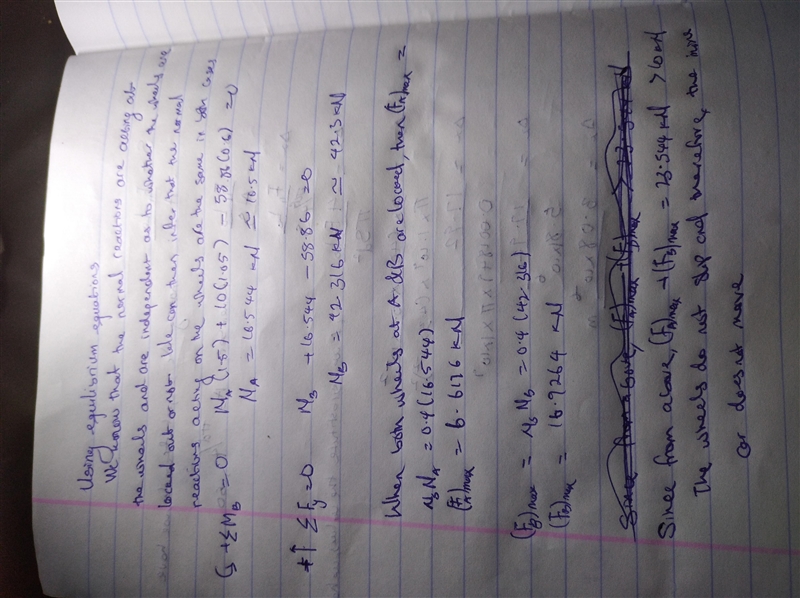 Using equilibrium equations
We know that the normal reactions are acting at
the wheels and are independent as to whether the wheels are
locked out or not. We can then infer that the normal
reactions acting on the wheels are the same in both cases
↺+ΣM_B = 0 N_A(1.5) + 10(1.05) - 58.86(0.6) = 0
N_A = 16.544 kN ≃ 16.5 kN
+↑ΣFy = 0 N_B + 16.544 - 58.86 = 0
N_B = 42.316 kN ≃ 42.3 kN
When both wheels at A & B are locked, then (F_A)max =
μsN_A = 0.4(16.544)
(F_A)max = 6.6176 kN
(F_B)max = μsN_B = 0.4(42.316)
(F_B)max = 16.9264 kN
Since from above, (F_A)max + (F_B)max > 23.544 kN
Since from above, (F_A)max + (F_B)max = 23.544 kN > 10 kN
The wheels do not slip and therefore, the mine
car does not move